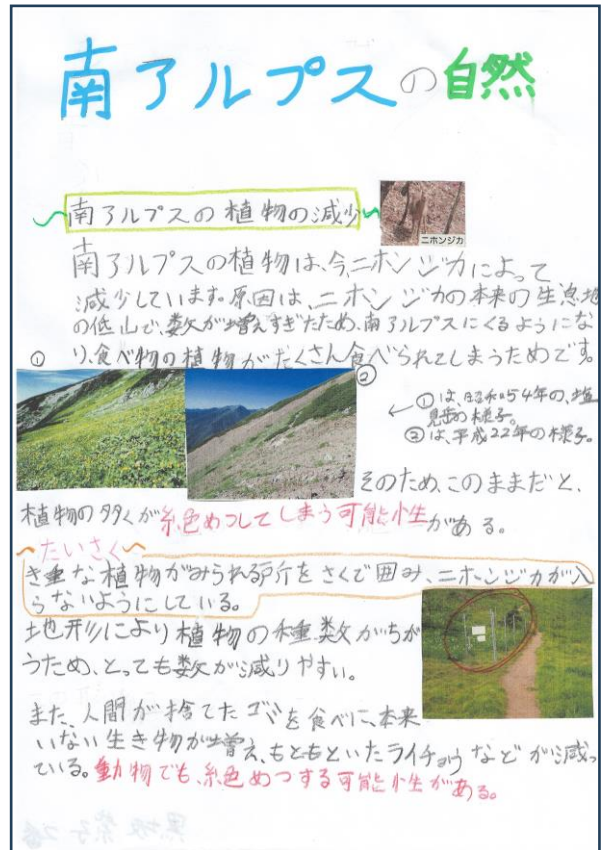 南アルプスの自然
南アルプスの植物の減少
ニホンジカ
南アルプスの植物は、今、ニホンジカによって
減少しています。原因は、ニホンジカの本来の生息地
の低山で、数が増えすぎたため、南アルプスにくるようにな
り、食べ物の植物がたくさん食べられてしまうためです。
①
②
←①は、昭和54年の、塩
見岳の様子。
②は、平成22年の様子。
そのため、このままだと、
植物の多くが絶めつしてしまう可能性がある。
たいさく
き重な植物がみられる場所をさくで囲み、ニホンジカが入
らないようにしている。
地形により植物の種、数がちが
うため、とっても数が減りやすい。
また、人間が捨てたゴミを食べに、本来
いない生き物が増え、もともといたライチョウなどが減っ
ている。動物でも、絶めつする可能性がある。